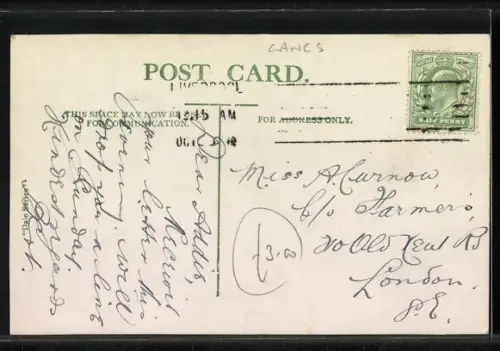 LANCS
POST CARD.
LIVERPOOL
THIS SPACE MAY NOW BE
FOR COMMUNICATION.
FOR ADDRESS ONLY.
.15 AM
OCT
HALF PENNY
Dear Addie,
Received
your letter this
morning. Will
drop you a line
on Sunday
Kindest regards
Miss A. Curnow,
c/o Farmers,
Old Kent Rd
London.
S.E.